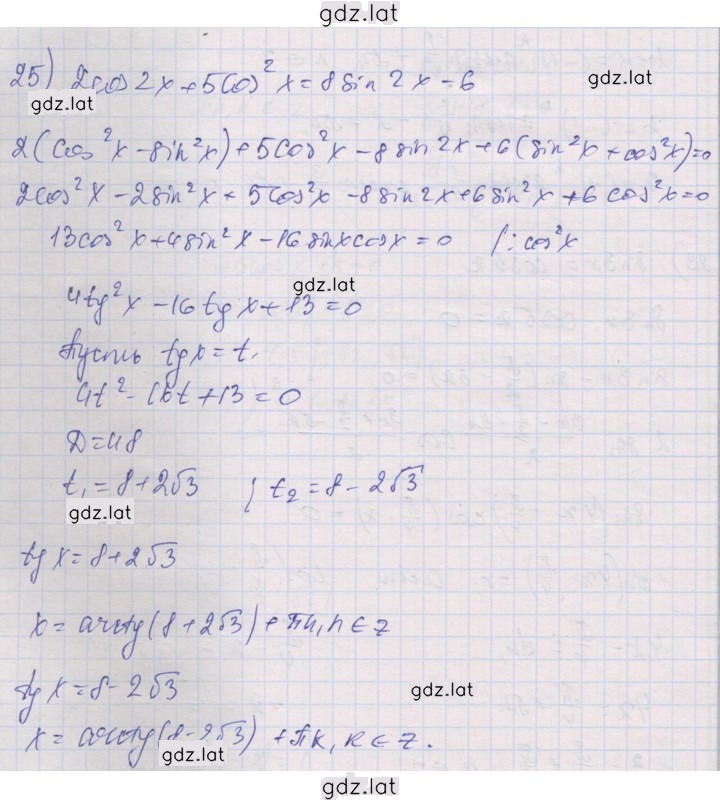 gdz.lat
25) 2cos2x+5cos²x=8sin2x-6
gdz.lat
gdz.lat
2(cos²x-sin²x)+5cos²x-8sin2x+6(sin²x+cos²x)=0
2cos²x-2sin²x+5cos²x-8sin2x+6sin²x+6cos²x=0
13cos²x+4sin²x-16sinxcosx=0 /:cos²x
gdz.lat
4tg²x-16tgx+13=0
Пусть tgx=t,
4t²-16t+13=0
D=48
t₁=8+2√3 ; t₂=8-2√3
gdz.lat
tgx=8+2√3
x=arctg(8+2√3)+πn, n∈z
tgx=8-2√3
gdz.lat
x=arctg(8-2√3)+πk, k∈z.
gdz.lat
gdz.lat